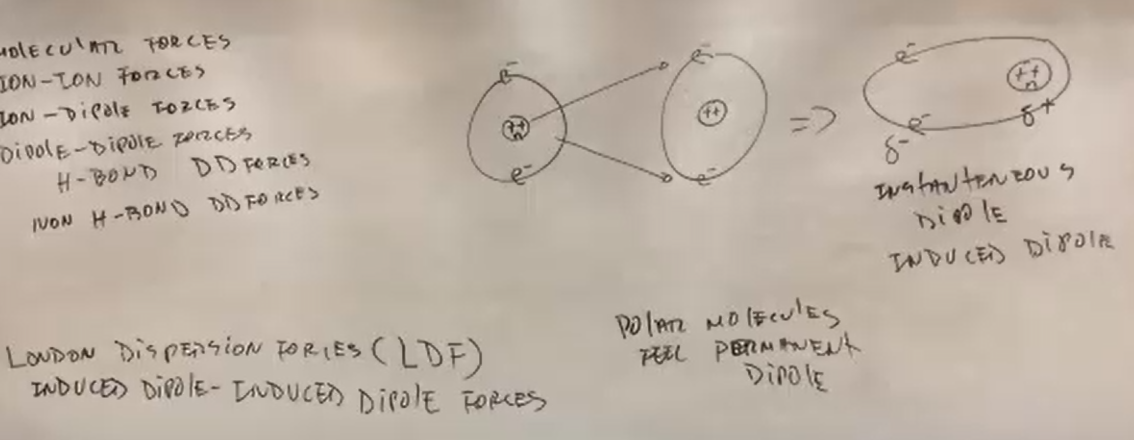 MOLECULAR FORCES
ION-ION FORCES
ION-DIPOLE FORCES
DIPOLE-DIPOLE FORCES
H-BOND DD FORCES
NON H-BOND DD FORCES
e⁻
++
n
e⁻
e⁻
++
e⁻
=>
e⁻
++
n
e⁻
δ⁻
δ⁺
INSTANTENEOUS
DIPOLE
INDUCED DIPOLE
LONDON DISPERSION FORCES (LDF)
INDUCED DIPOLE-INDUCED DIPOLE FORCES
POLAR MOLECULES
FEEL PERMANENT
DIPOLE